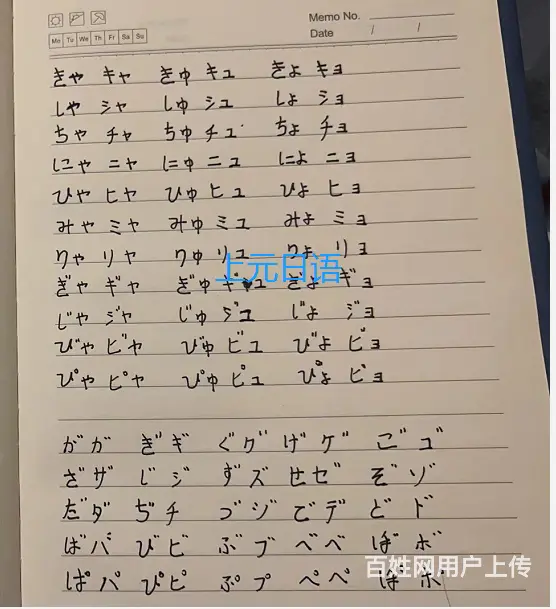 Memo No.
Mo Tu We Th Fr Sa Su
Date / /
きゃ キャ きゅ キュ きょ キョ
しゃ シャ しゅ シュ しょ ショ
ちゃ チャ ちゅ チュ ちょ チョ
にゃ ニャ にゅ ニュ によ ニョ
ひゃ ヒャ ひゅ ヒュ ひょ ヒョ
みゃ ミャ みゅ ミュ みょ ミョ
りゃ リャ りゅ リュ りょ リョ
上元日语
ぎゃ ギャ ぎゅ ギュ ぎょ ギョ
じゃ ジャ じゅ ジュ じょ ジョ
びゃ ビャ びゅ ビュ びょ ビョ
ぴゃ ピャ ぴゅ ピュ ぴょ ピョ
がガ ぎギ ぐグ げゲ ごゴ
ざザ じジ ずズ せゼ ぞゾ
だダ ぢチ づジ でデ どド
ばバ びビ ぶブ べベ ぼボ
百姓网用户上传
ぱパ ぴピ ぷプ ぺペ ぽポ